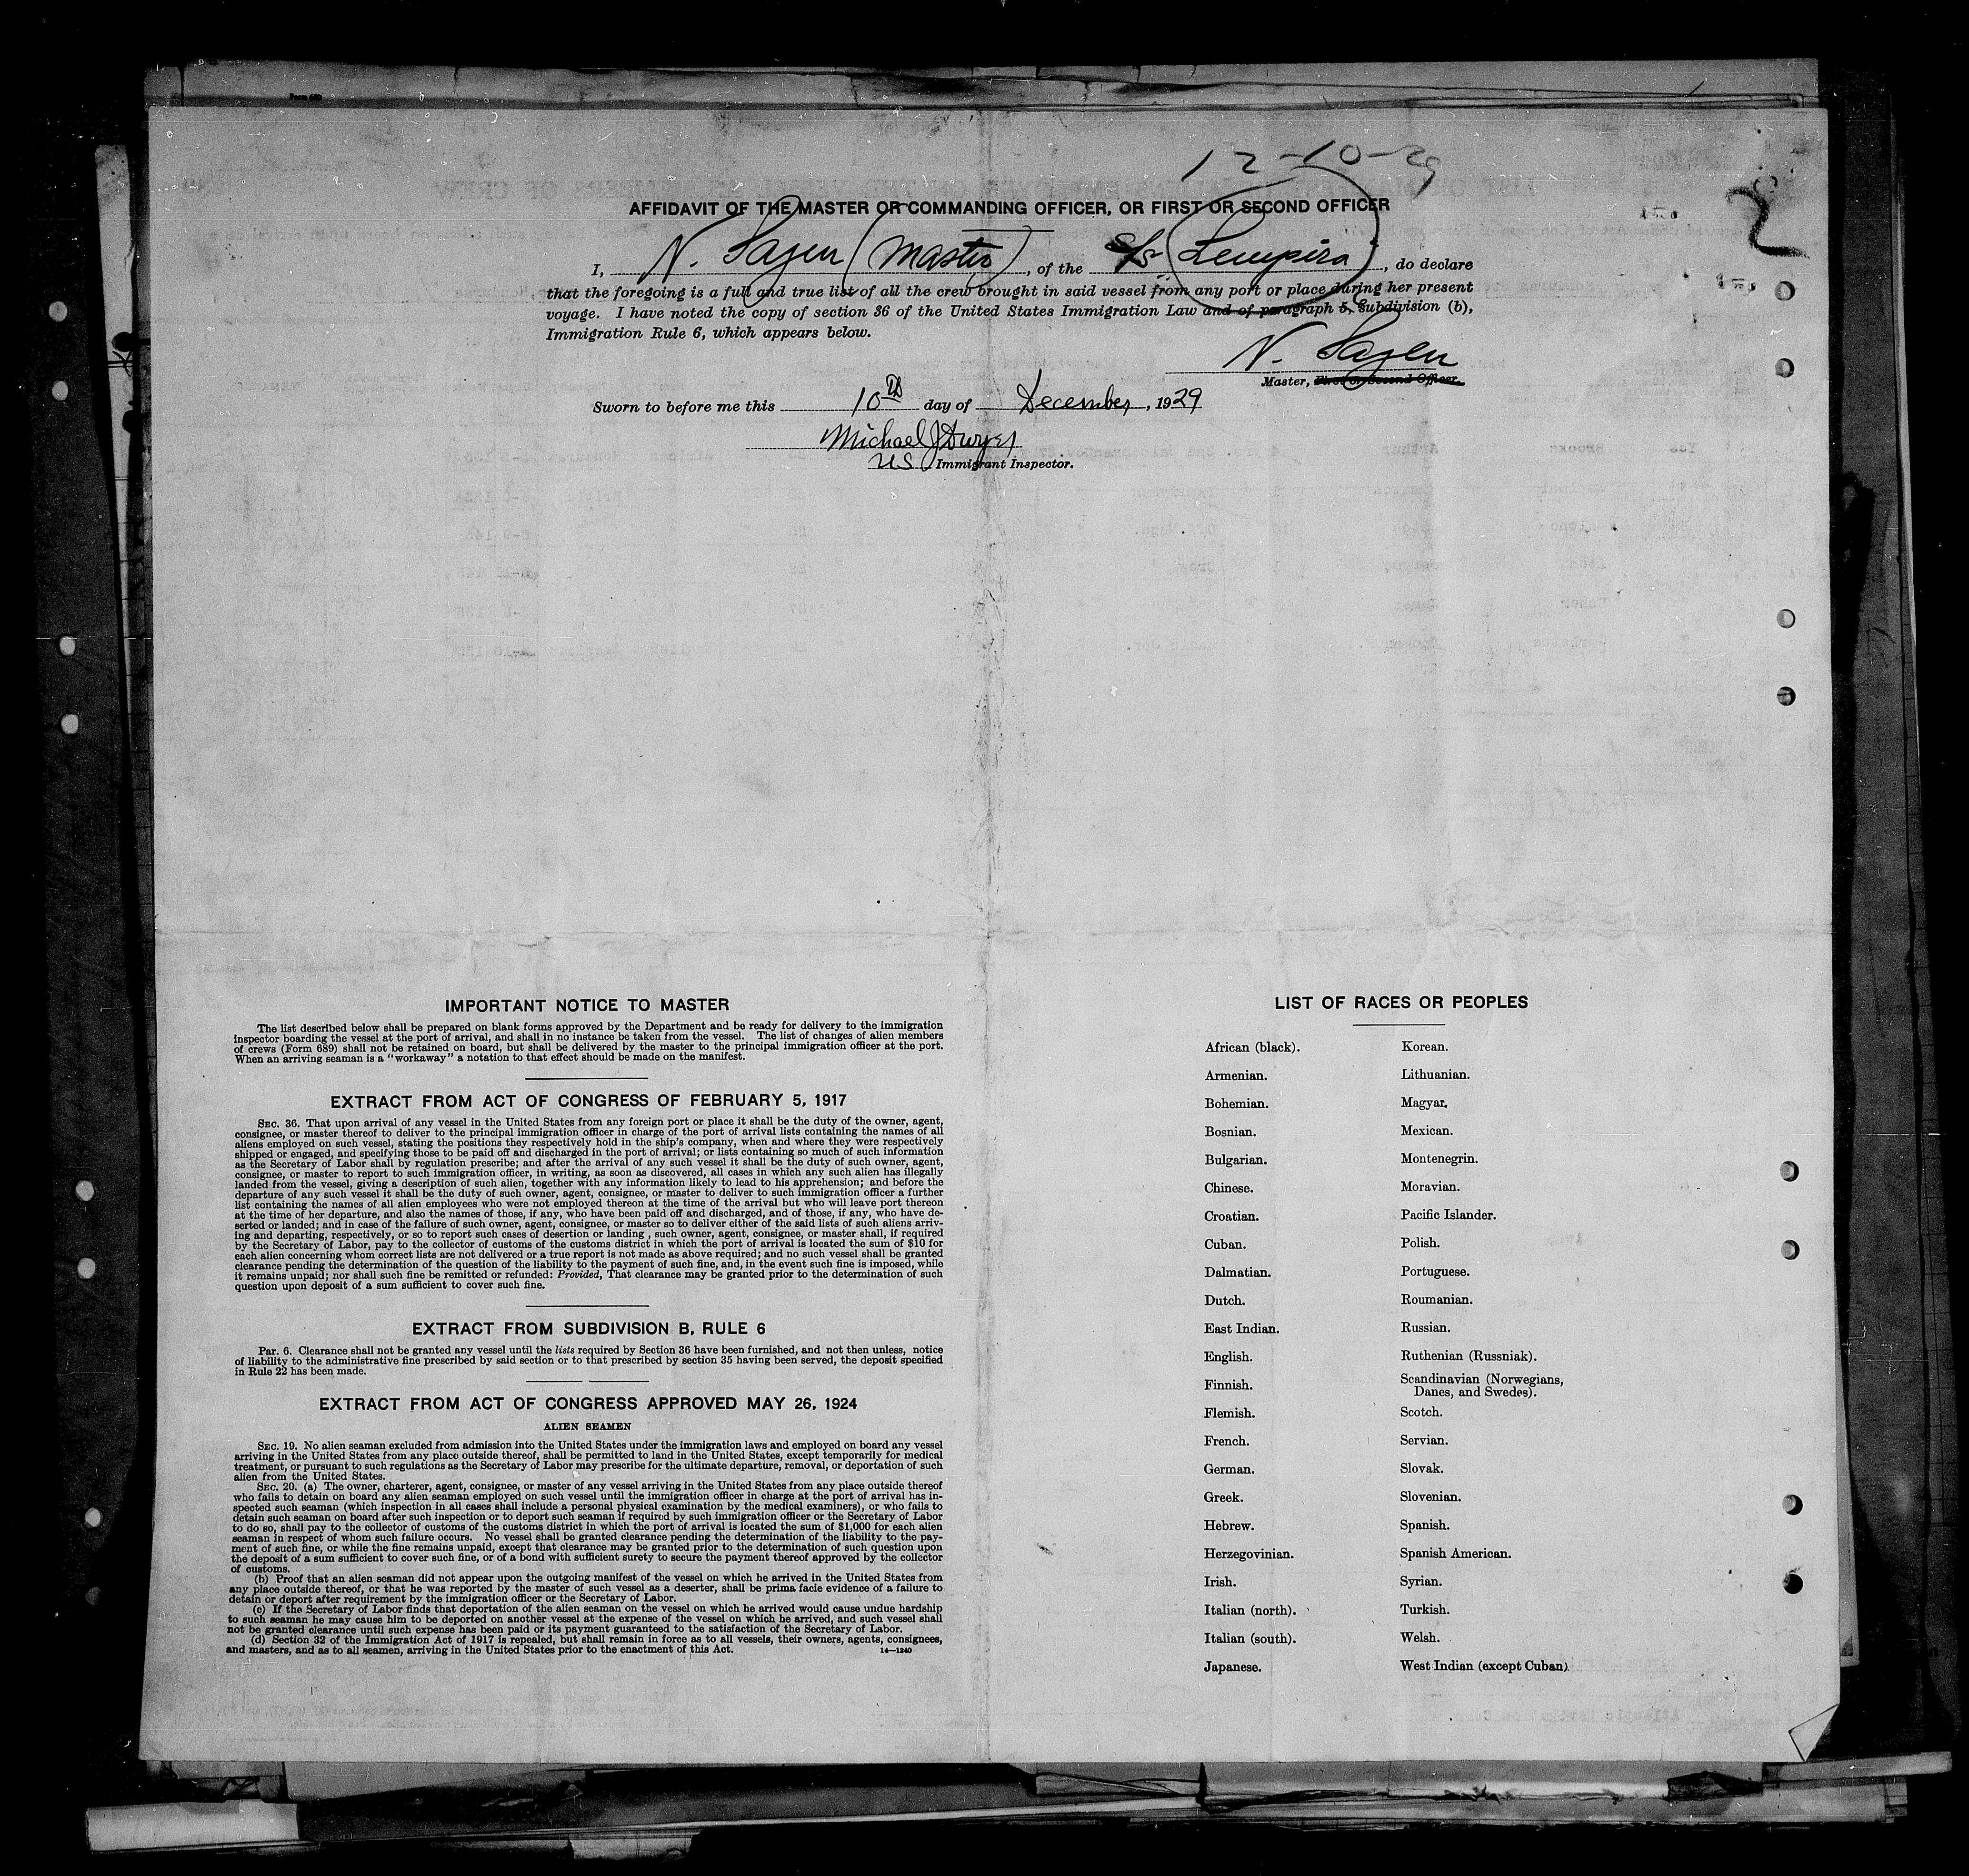 12-10-29
AFFIDAVIT OF THE MASTER OR COMMANDING OFFICER, OR FIRST OR SECOND OFFICER
I, N. Sagen (Master), of the S/S Lempira, do declare
that the foregoing is a full and true list of all the crew brought in said vessel from any port or place during her present
voyage. I have noted the copy of section 36 of the United States Immigration Law and of paragraph 5, Subdivision (b),
Immigration Rule 6, which appears below.
N. Sagen
Master, First or Second Officer.
Sworn to before me this 10th day of December, 1929
Michael J Dwyer
US Immigrant Inspector.
IMPORTANT NOTICE TO MASTER
The list described below shall be prepared on blank forms approved by the Department and be ready for delivery to the immigration
inspector boarding the vessel at the port of arrival, and shall in no instance be taken from the vessel. The list of changes of alien members
of crews (Form 689) shall not be retained on board, but shall be delivered by the master to the principal immigration officer at the port.
When an arriving seaman is a "workaway" a notation to that effect should be made on the manifest.
EXTRACT FROM ACT OF CONGRESS OF FEBRUARY 5, 1917
SEC. 36. That upon arrival of any vessel in the United States from any foreign port or place it shall be the duty of the owner, agent,
consignee, or master thereof to deliver to the principal immigration officer in charge of the port of arrival lists containing the names of all
aliens employed on such vessel, stating the positions they respectively hold in the ship's company, when and where they were respectively
shipped or engaged, and specifying those to be paid off and discharged in the port of arrival; or lists containing so much of such information
as the Secretary of Labor shall by regulation prescribe; and after the arrival of any such vessel it shall be the duty of such owner, agent,
consignee, or master to report to such immigration officer, in writing, as soon as discovered, all cases in which any such alien has illegally
landed from the vessel, giving a description of such alien, together with any information likely to lead to his apprehension; and before the
departure of any such vessel it shall be the duty of such owner, agent, consignee, or master to deliver to such immigration officer a further
list containing the names of all alien employees who were not employed thereon at the time of the arrival but who will leave port thereon
at the time of her departure, and also the names of those, if any, who have been paid off and discharged, and of those, if any, who have de-
serted or landed; and in case of the failure of such owner, agent, consignee, or master so to deliver either of the said lists of such aliens arriv-
ing and departing, respectively, or so to report such cases of desertion or landing , such owner, agent, consignee, or master shall, if required
by the Secretary of Labor, pay to the collector of customs of the customs district in which the port of arrival is located the sum of $10 for
each alien concerning whom correct lists are not delivered or a true report is not made as above required; and no such vessel shall be granted
clearance pending the determination of the question of the liability to the payment of such fine, and, in the event such fine is imposed, while
it remains unpaid; nor shall such fine be remitted or refunded: Provided, That clearance may be granted prior to the determination of such
question upon deposit of a sum sufficient to cover such fine.
EXTRACT FROM SUBDIVISION B, RULE 6
Par. 6. Clearance shall not be granted any vessel until the lists required by Section 36 have been furnished, and not then unless, notice
of liability to the administrative fine prescribed by said section or to that prescribed by section 35 having been served, the deposit specified
in Rule 22 has been made.
EXTRACT FROM ACT OF CONGRESS APPROVED MAY 26, 1924
ALIEN SEAMEN
SEC. 19. No alien seaman excluded from admission into the United States under the immigration laws and employed on board any vessel
arriving in the United States from any place outside thereof, shall be permitted to land in the United States, except temporarily for medical
treatment, or pursuant to such regulations as the Secretary of Labor may prescribe for the ultimate departure, removal, or deportation of such
alien from the United States.
SEC. 20. (a) The owner, charterer, agent, consignee, or master of any vessel arriving in the United States from any place outside thereof
who fails to detain on board any alien seaman employed on such vessel until the immigration officer in charge at the port of arrival has in-
spected such seaman (which inspection in all cases shall include a personal physical examination by the medical examiners), or who fails to
detain such seaman on board after such inspection or to deport such seaman if required by such immigration officer or the Secretary of Labor
to do so, shall pay to the collector of customs of the customs district in which the port of arrival is located the sum of $1,000 for each alien
seaman in respect of whom such failure occurs. No vessel shall be granted clearance pending the determination of the liability to the pay-
ment of such fine, or while the fine remains unpaid, except that clearance may be granted prior to the determination of such question upon
the deposit of a sum sufficient to cover such fine, or of a bond with sufficient surety to secure the payment thereof approved by the collector
of customs.
(b) Proof that an alien seaman did not appear upon the outgoing manifest of the vessel on which he arrived in the United States from
any place outside thereof, or that he was reported by the master of such vessel as a deserter, shall be prima facie evidence of a failure to
detain or deport after requirement by the immigration officer or the Secretary of Labor.
(c) If the Secretary of Labor finds that deportation of the alien seaman on the vessel on which he arrived would cause undue hardship
to such seaman he may cause him to be deported on another vessel at the expense of the vessel on which he arrived, and such vessel shall
not be granted clearance until such expense has been paid or its payment guaranteed to the satisfaction of the Secretary of Labor.
(d) Section 32 of the Immigration Act of 1917 is repealed, but shall remain in force as to all vessels, their owners, agents, consignees,
and masters, and as to all seamen, arriving in the United States prior to the enactment of this Act.
14—1240
LIST OF RACES OR PEOPLES
African (black).
Armenian.
Bohemian.
Bosnian.
Bulgarian.
Chinese.
Croatian.
Cuban.
Dalmatian.
Dutch.
East Indian.
English.
Finnish.
Flemish.
French.
German.
Greek.
Hebrew.
Herzegovinian.
Irish.
Italian (north).
Italian (south).
Japanese.
Korean.
Lithuanian.
Magyar.
Mexican.
Montenegrin.
Moravian.
Pacific Islander.
Polish.
Portuguese.
Roumanian.
Russian.
Ruthenian (Russniak).
Scandinavian (Norwegians,
Danes, and Swedes).
Scotch.
Servian.
Slovak.
Slovenian.
Spanish.
Spanish American.
Syrian.
Turkish.
Welsh.
West Indian (except Cuban)